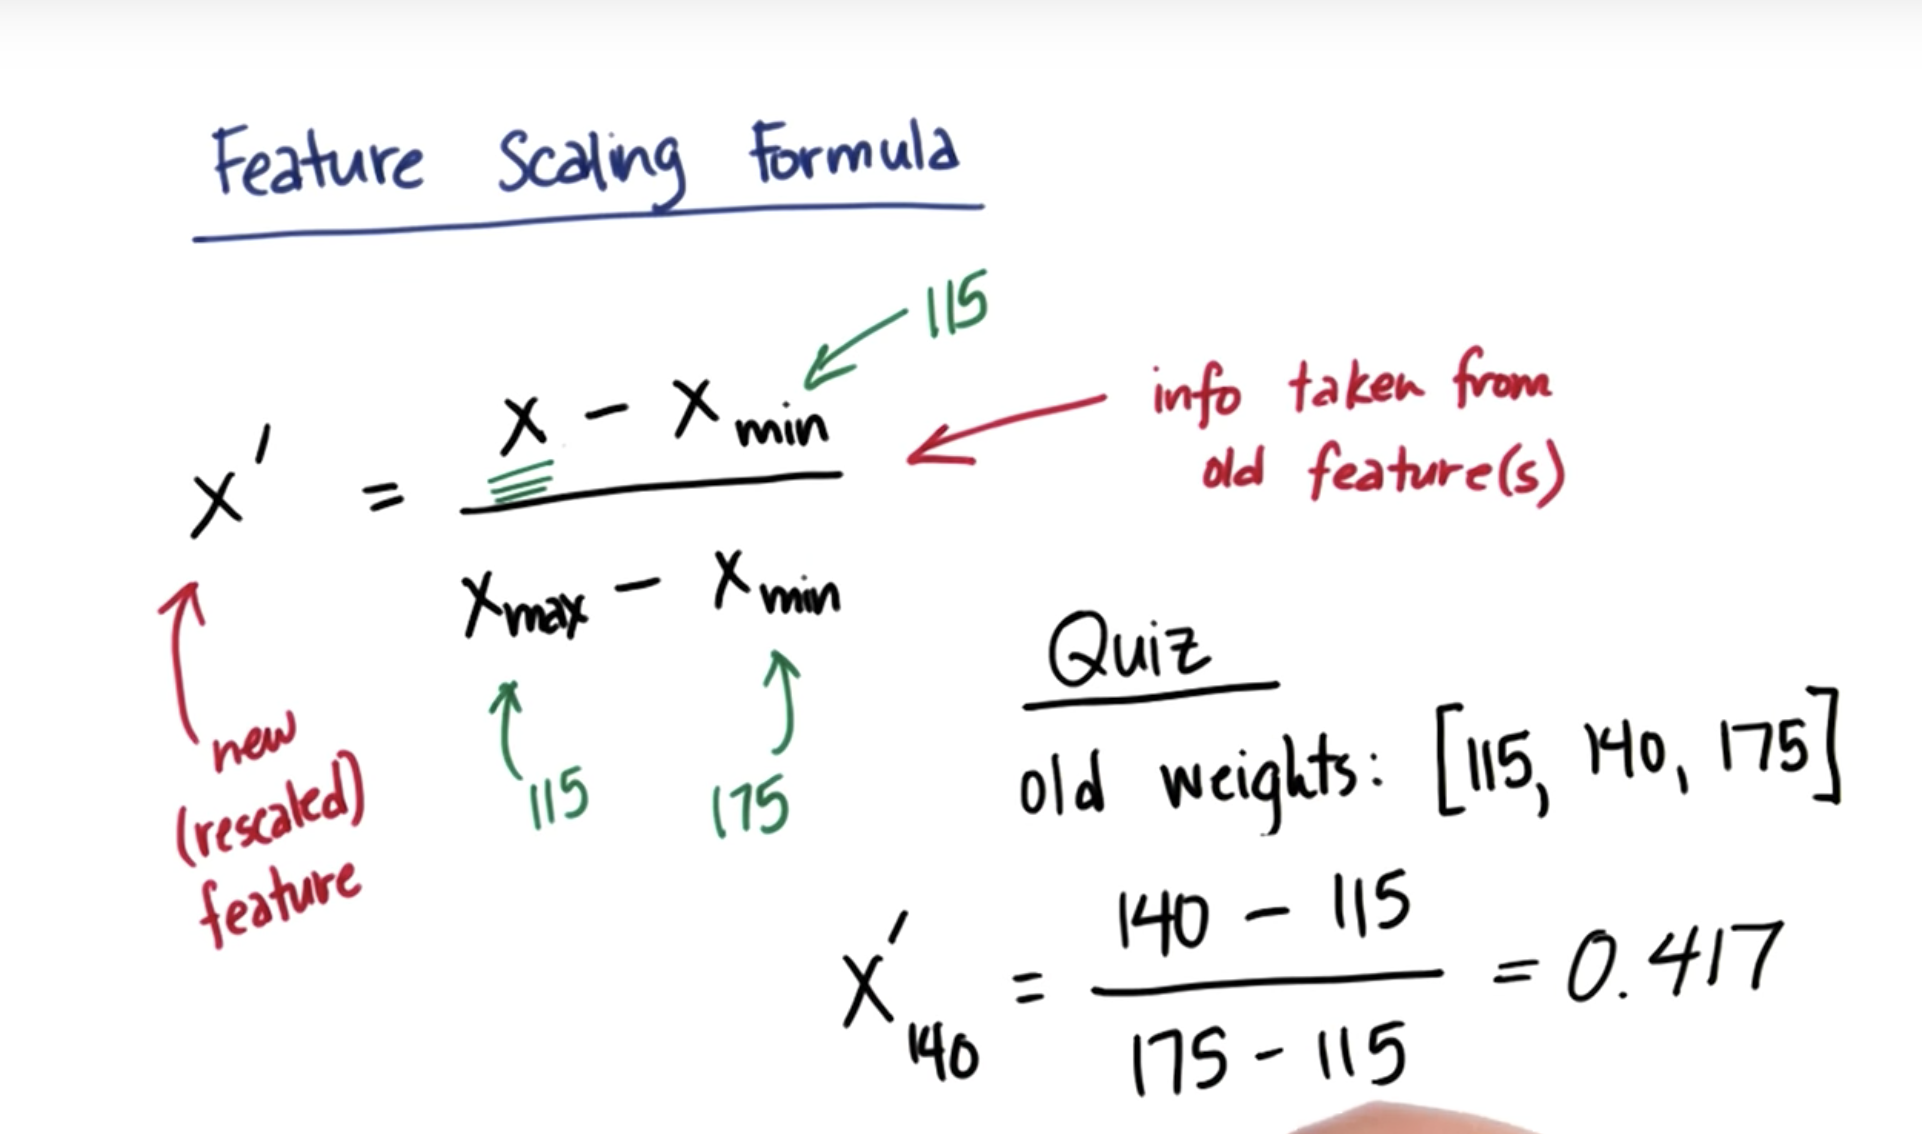 Feature Scaling Formula
115
x' = x - xmin
xmax - xmin
info taken from
old feature(s)
115
175
new
(rescaled)
feature
Quiz
old weights: [115, 140, 175]
140 - 115
x'140 = = 0.417
175 - 115